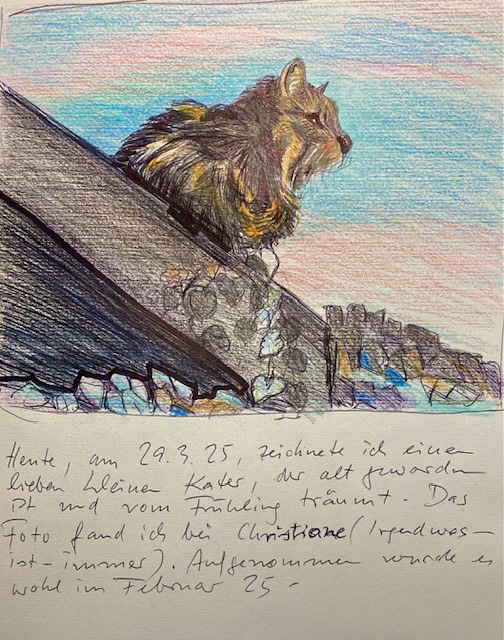 Heute, am 29.3.25, zeichnete ich einen
lieben kleinen Kater, der alt geworden
ist und vom Frühling träumt. Das
Foto fand ich bei Christiane (Irgendwas-
ist-immer). Aufgenommen wurde es
wohl im Februar 25 -